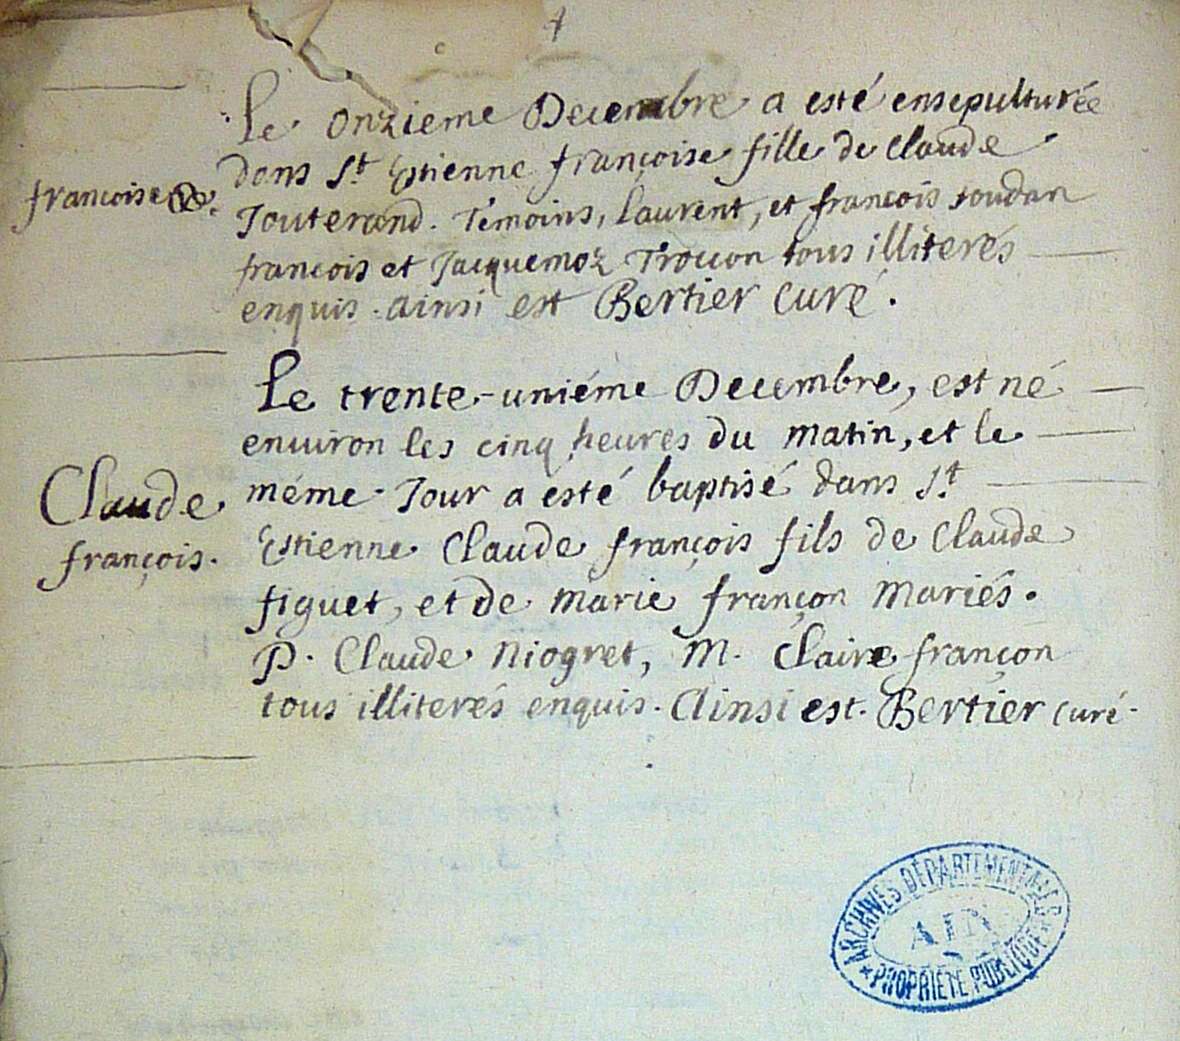 Le onzieme Decembre a esté ensepulturée
dans St. Estienne françoise fille de Claude
francoise
Jouterand. Témoins, Laurent, et françois soudan
francois et Jacquemoz Troccon tous illiterés
enquis. ainsi est Bertier Curé.
Le trente-uniéme Decembre, est né
environ les cinq heures du matin, et le
Claude
méme Jour a esté baptisé dans St.
françois.
Estienne Claude françois fils de Claude
figuet, et de marie françon Mariés.
P. Claude Niogret, M. Claire françon
tous illiterés enquis. Ainsi est. Bertier curé.
ARCHIVES DÉPARTEMENTALES
AIN
PROPRIÉTÉ PUBLIQUE